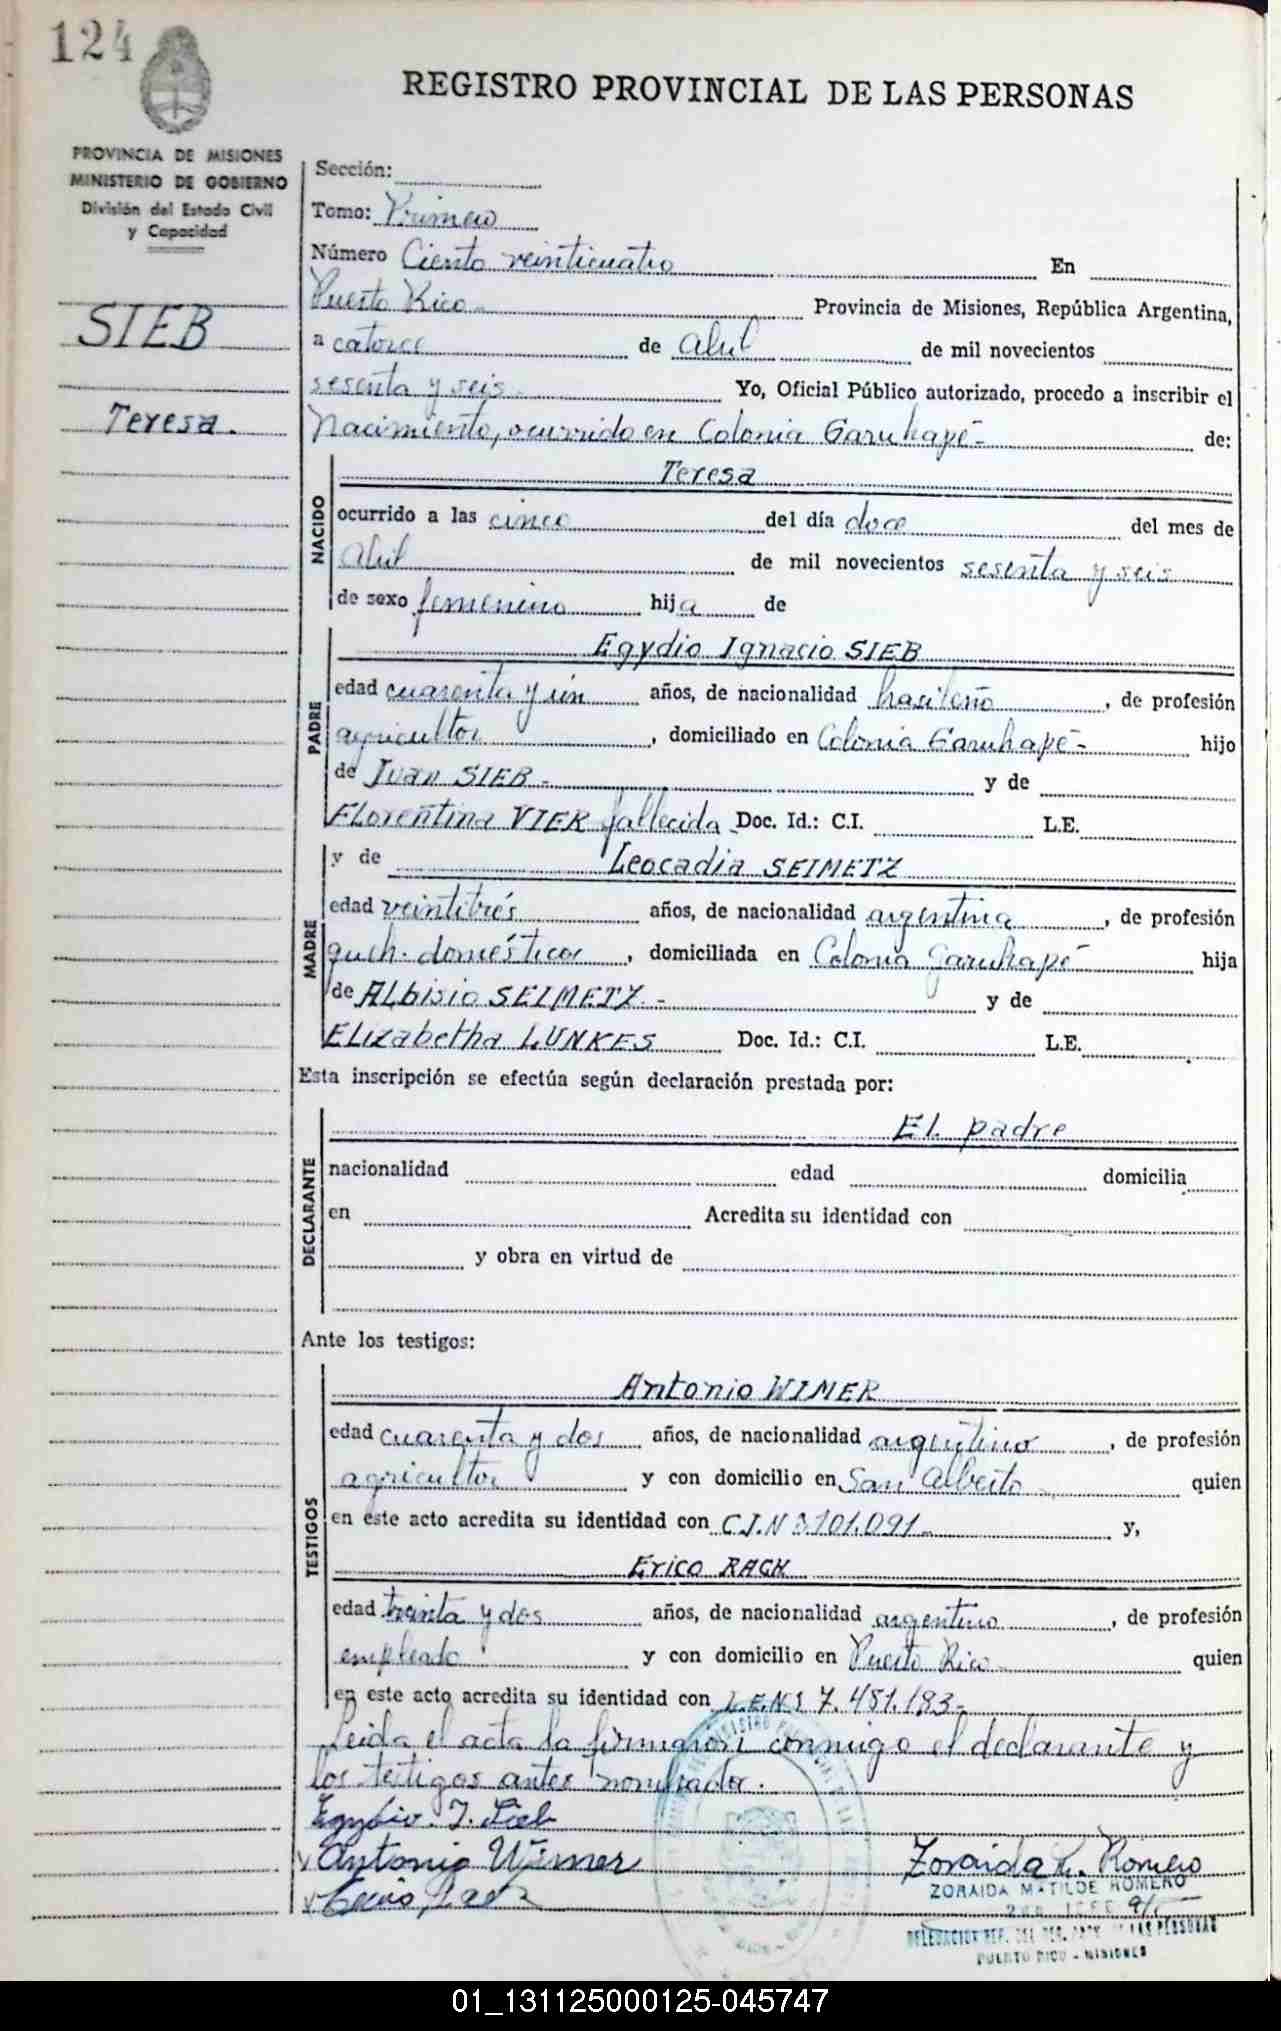 124
REGISTRO PROVINCIAL DE LAS PERSONAS
PROVINCIA DE MISIONES
MINISTERIO DE GOBIERNO
División del Estado Civil
y Capacidad
SIEB
Teresa.
Sección:
Tomo: Primero
Número Ciento veinticuatro En
Puerto Rico Provincia de Misiones, República Argentina,
a catorce de abril de mil novecientos
sesenta y seis. Yo, Oficial Público autorizado, procedo a inscribir el
Nacimiento, ocurrido en Colonia Garuhapé- de:
NACIDO
Teresa
ocurrido a las cinco del día doce del mes de
abril de mil novecientos sesenta y seis
de sexo femenino hija de
PADRE
Egydio Ignacio SIEB
edad cuarenta y un años, de nacionalidad brasileño, de profesión
agricultor, domiciliado en Colonia Garuhapé- hijo
de Juan SIEB- y de
Florentina VIER fallecida Doc. Id.: C.I. L.E.
MADRE
y de Leocadia SEIMETZ
edad veintitrés años, de nacionalidad argentina, de profesión
queh. domésticos, domiciliada en Colonia Garuhapé hija
de Albisio SEIMETZ.- y de
Elizabetha LUNKES Doc. Id.: C.I. L.E.
Esta inscripción se efectúa según declaración prestada por:
DECLARANTE
El padre
nacionalidad edad domicilia
en Acredita su identidad con
y obra en virtud de
Ante los testigos:
TESTIGOS
Antonio WIMER
edad cuarenta y dos años, de nacionalidad argentino, de profesión
agricultor y con domicilio en San Alberto quien
en este acto acredita su identidad con C.I.N 3.101.091- y,
Erico RACK
edad treinta y dos años, de nacionalidad argentino, de profesión
empleado y con domicilio en Puerto Rico quien
en este acto acredita su identidad con L.E.Nº 7.451.183-
Leida el acta la firmaron conmigo el declarante y
los testigos antes nombrados.
Egydio I. Sieb
Antonio Wimer
Zoraida R. Romero
ZORAIDA MATILDE ROMERO
DELEGACION REG. DEL REG. PROV. DE LAS PERSONAS
PUERTO RICO - MISIONES
01_131125000125-045747